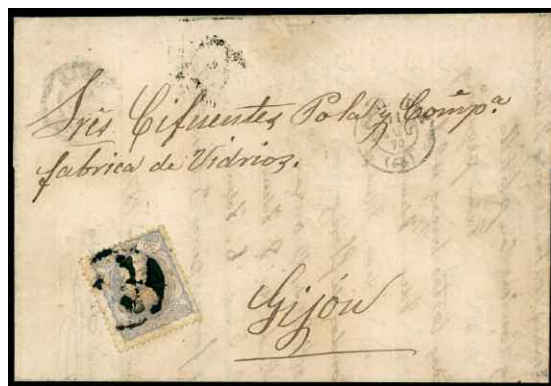 Sres Cifuentes Pola y Compª
fabrica de Vidrios.
Gijón